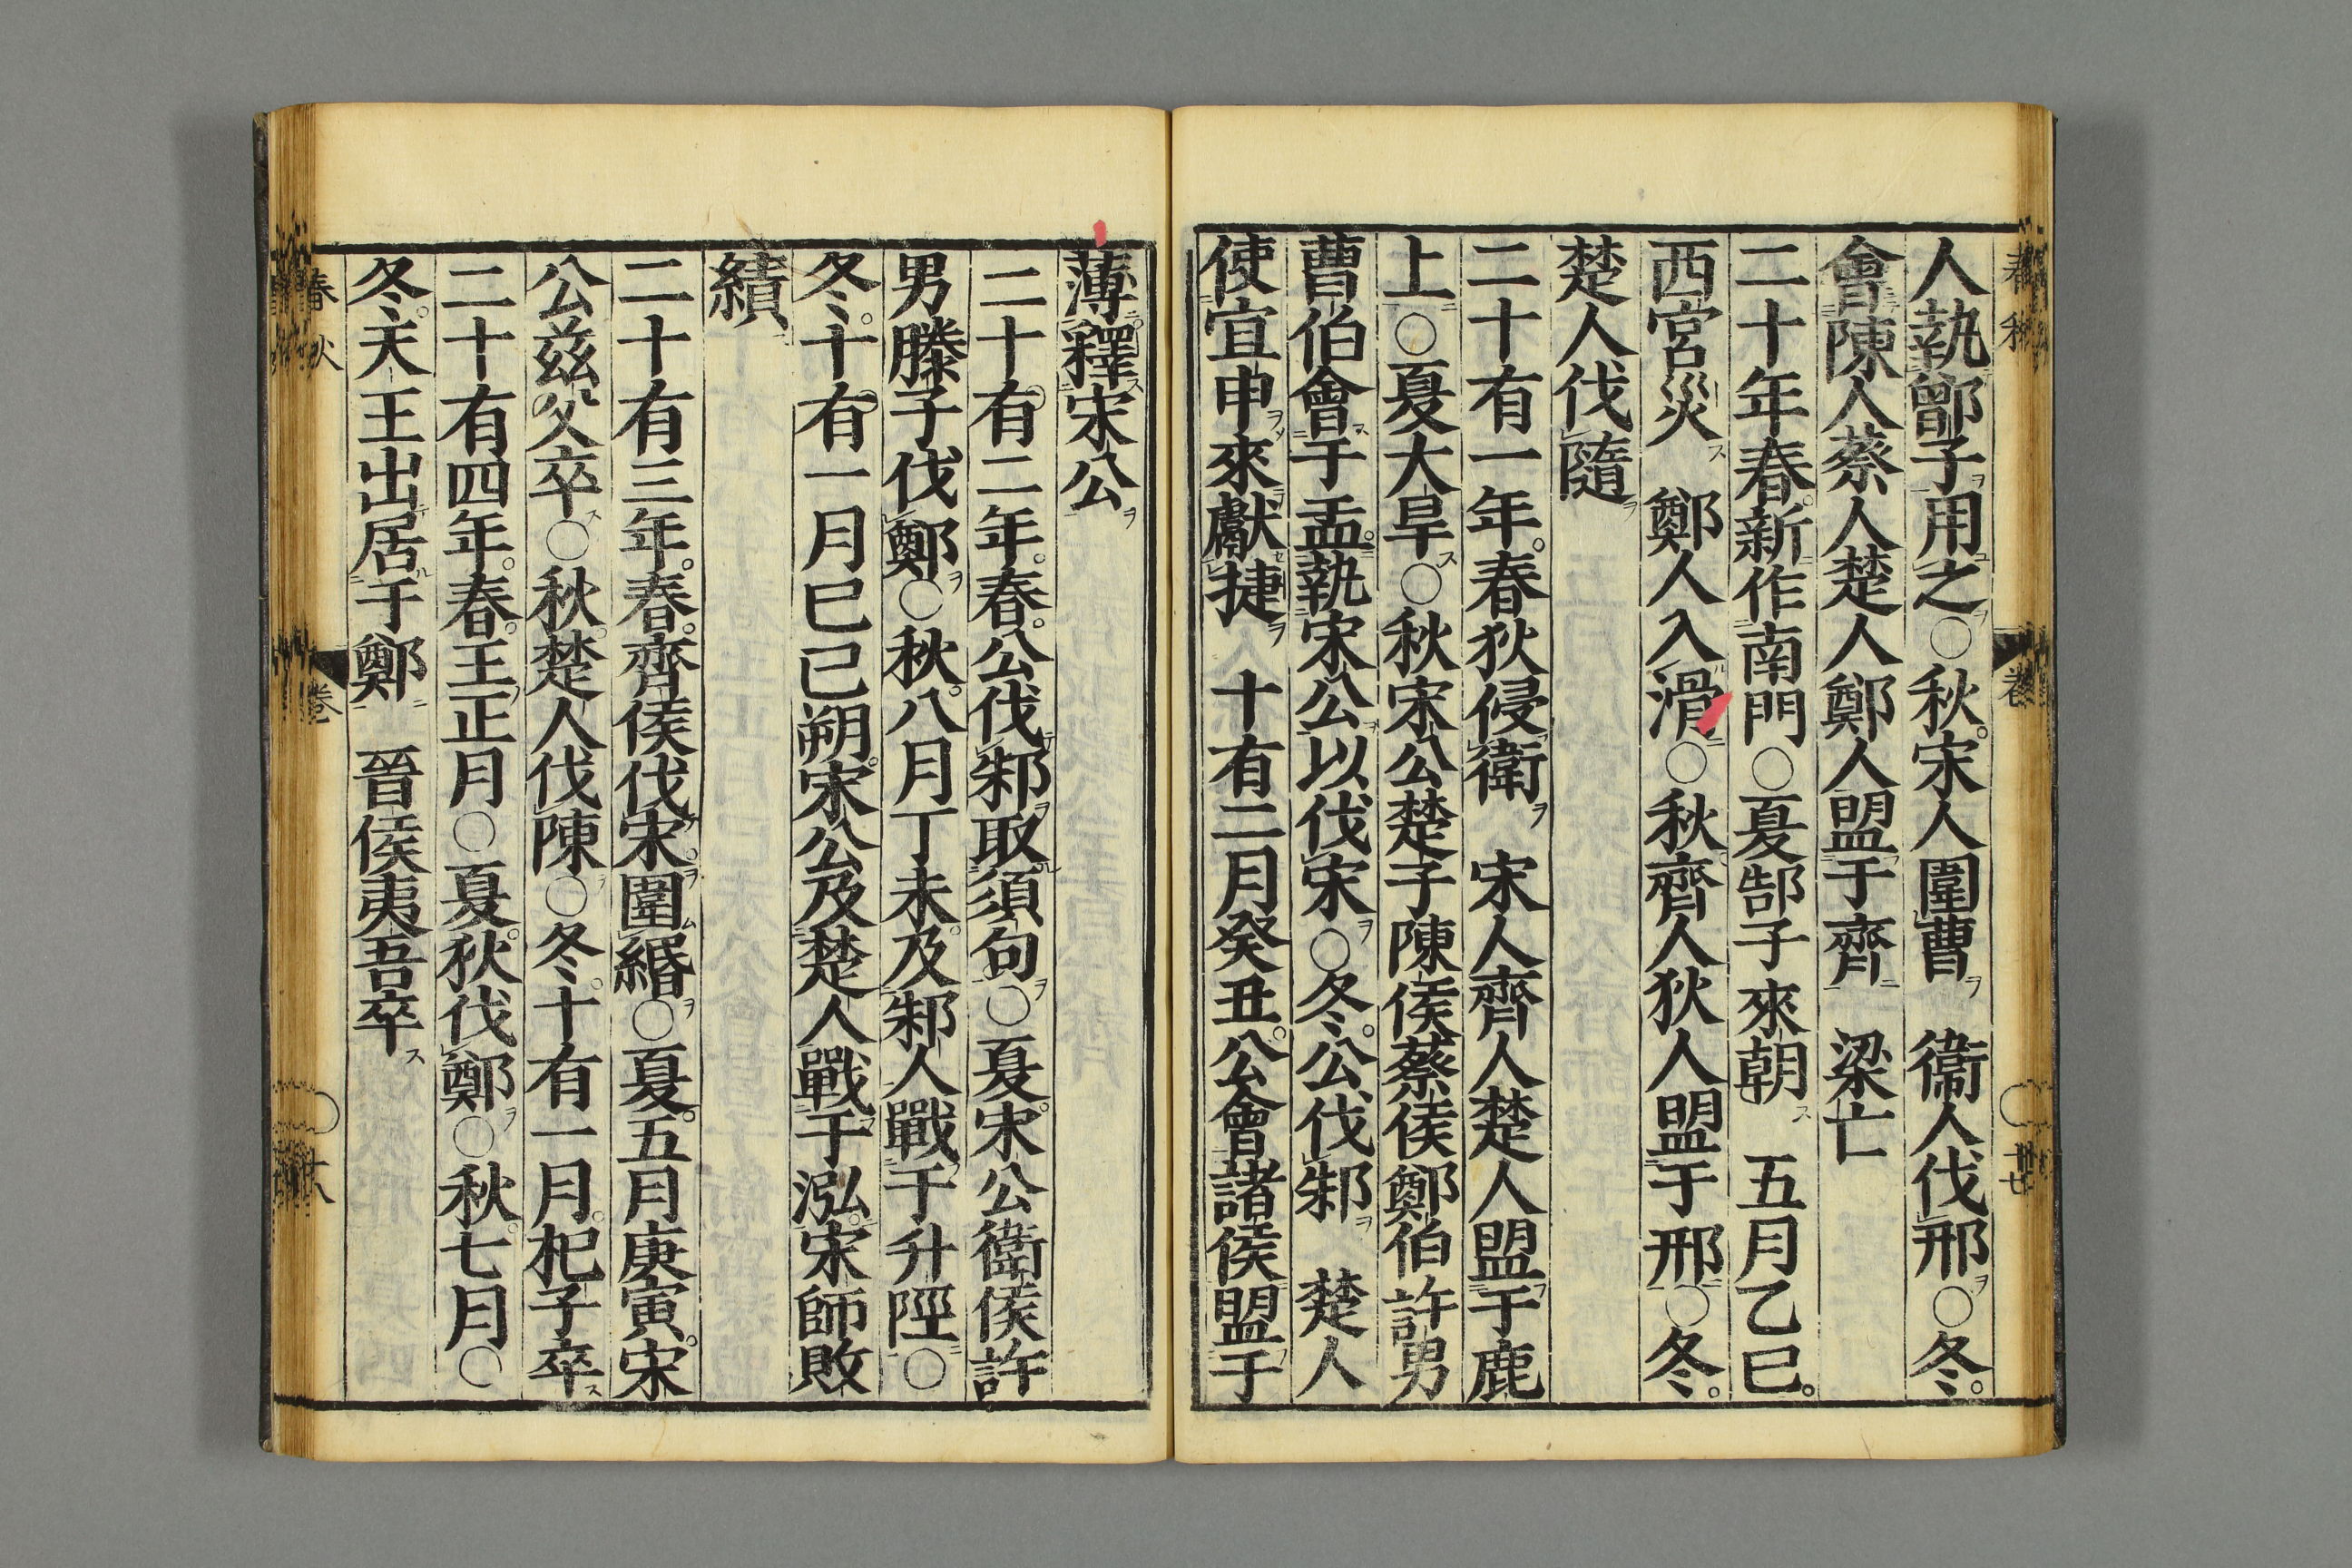 人執鄫子用之○秋宋人圍曹　衞人伐邢○冬
會陳人蔡人楚人鄭人盟于齊　梁亡
二十年春新作南門○夏郜子來朝　五月乙巳
西宮災　鄭人入滑○秋齊人狄人盟于邢○冬
楚人伐隨
二十有一年春狄侵衛　宋人齊人楚人盟于鹿
上○夏大旱○秋宋公楚子陳侯蔡侯鄭伯許男
曹伯會于盂執宋公以伐宋○冬公伐邾　楚人
使宜申來獻捷　十有二月癸丑公會諸侯盟于
薄釋宋公
二十有二年春公伐邾取須句○夏宋公衛侯許
男滕子伐鄭○秋八月丁未及邾人戰于升陘○
冬十有一月巳己朔宋公及楚人戰于泓宋師敗
績
二十有三年春齊侯伐宋圍緡○夏五月庚寅宋
公茲父卒○秋楚人伐陳○冬十有一月杞子卒
二十有四年春王正月○夏狄伐鄭○秋七月○
冬天王出居于鄭　晉侯夷吾卒
春秋
卷